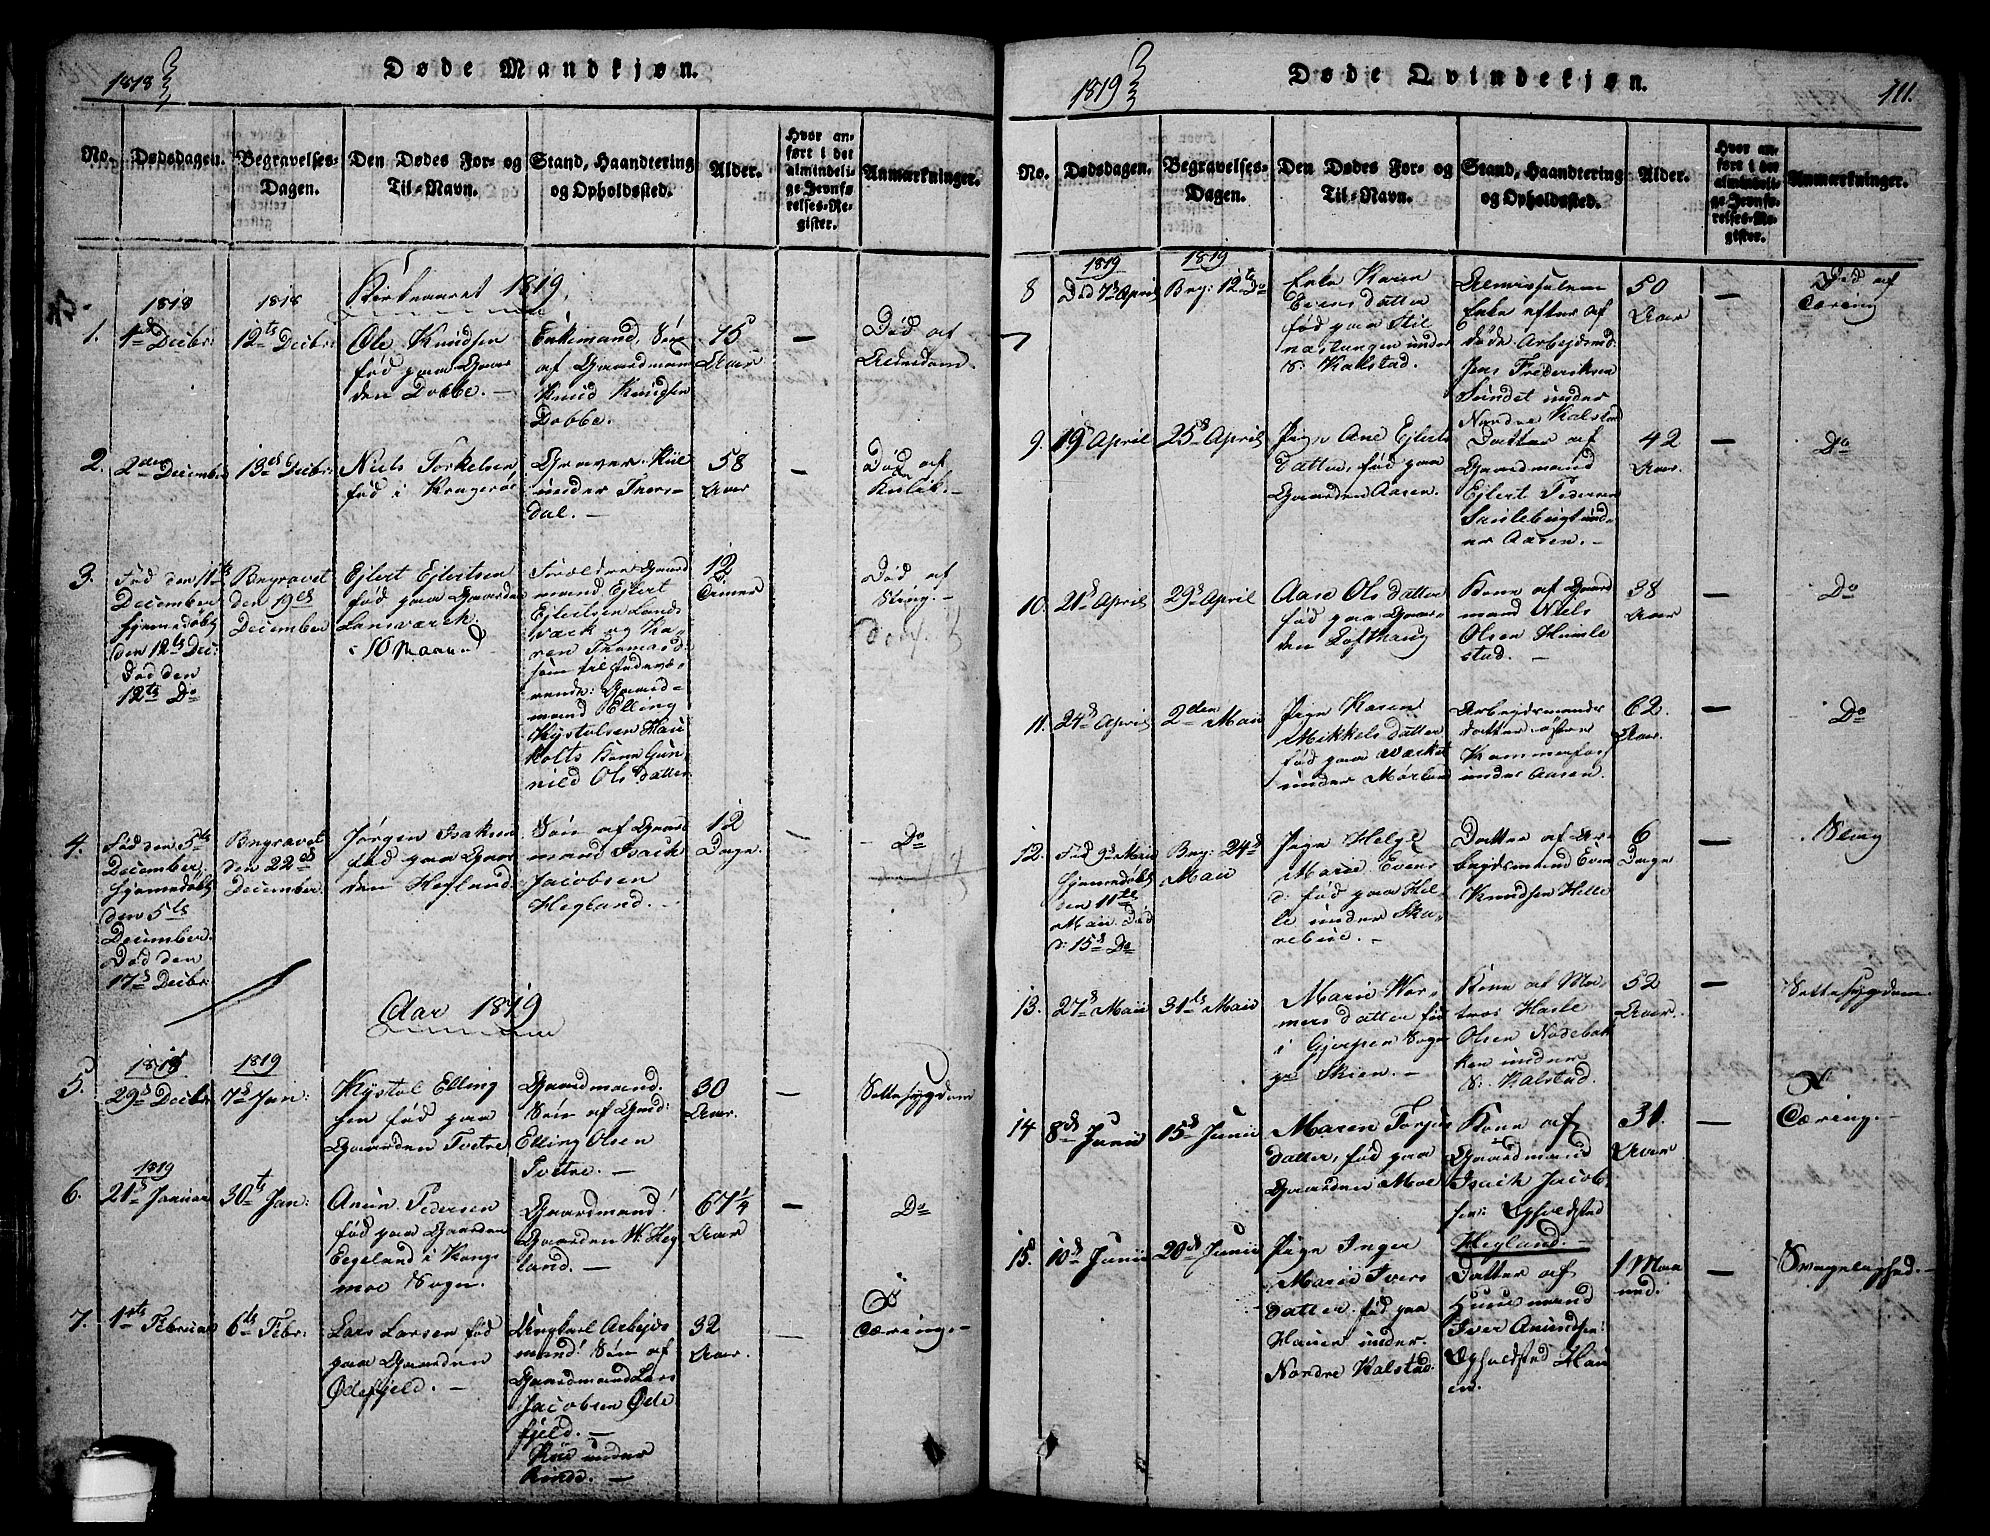 1818
Døde Mandkjøn.
No.
Dødsdagen.
Begravelses-
Dagen.
Den Dødes For- og
Til-Navn.
Stand, Haandtering
og Opholdssted.
Alder.
Hvor an-
ført i det
almindeli-
ge Jevnfø-
relses-Re-
gister.
Anmærkninger.
Kirkeaaret 1819
1818
1818
1.
1ste Decbr:
12te Decbr:
Ole Knudsen
fød paa Gaar
den Dobbe. -
Enkemand, Søn
af Gaardmand
Knud Knudsen
Dobbe.
75
Aar
-
Død af
Alderdom.
2.
2den December
13de Decbr:
Niels Torkelsen
fød i Kragerøe
Graver
under Thors-
dal. -
58
Aar
-
Død af
Kolik. -
3.
Fød den 11te
December
hjemmedøbt
den 12te Dec:
Død den
12te Do
Begravet
den 19de
December
Ejlert Ejlertsen
fød paa Gaarden
Langværk.
Forældre: Gaard
mand Ejlert
Ejlertsen Lang
værk og Ka-
ren Thomasd:
mand Elling
Kystolsen Hau
holts Kone Gun
nild Ols datter
12
Timer
Død af
Slag. -
4.
Fød den 5te
December,
hjemmedøbt
den 5te
December.
Død den
17de Decbr:
Begravet
den 22de
December
Jørgen Isaksen
fød paa Gaar
den Hegland
Søn af Gaard
mand Isach
Jacobsen
Hegland. -
12
Dage
-
- Do
Aar 1819
1818
1819
5.
29de Decbr
7de Jan:
Kystol Elling
sen fød paa
Gaarden Tvetre
Gaardmand.
Søn af Gmd:
Elling Olsen
Tvetre. -
30
Aar.
-
Sottesygdom
1819
6.
21de Januar
30te Jan:
Anun Pedersen
fød paa Gaarden
Eegeland i Vangs
moe Sogn.
Gaardmand!
Gaarden W. Heg
land. -
67 1/4
Aar
-
Do
7.
1ste Februar
6te Febr:
Lars Larsen fød
paa Gaarden
Ødefjeld. -
Ungkarl Arbejds
mand! Søn af
Gaardmand Lars
Jacobsen Øde
fjeld. -
under
32
Aar.
-
Tæring. -
1819
Døde Qvindekjøn.
111.
No.
Dødsdagen.
Begravelses-
Dagen.
Den Dødes For- og
Til-Navn.
Stand, Haandtering
og Opholdssted.
Alder.
Hvor an-
ført i det
almindeli-
ge Jevnfø-
relses-Re-
gister.
Anmærkninger.
1819
1819
8
Død 7de April
Beg: 12te Do
Enke Karen
Evensdatter
fød paa Stil
næstangen under
S. Kalstad.
Enke efter af
døde Arbejdsmd
Jens Frederiksen
Sundet under
Nordre Kalstad
50
Aar
-
Død af
Tæring
9.
19de April
25de April
Pige Ane Ejlerts
datter, fød paa
Gaarden Aasen.
Datter af
Gaardmand
Ejlert Pedersen
Saltebugt und
er Aasen. -
42
Aar.
-
Do
10.
21de April
29de April
Aase Ols datter
fød paa Gaar
den Lofthaug
Kone af Gaard
mand Niels
Olsen Humle
stad. -
38
Aar
-
Do
11.
24de April
2den Maii
Pige Karen
Mikkels datter
fød paa Værket
under Mørland
Arbejdsmands
datter
Kammerfos
under Aasen.
62
Aar.
-
Do
12.
Fød 9de Maii
hjemmedøbt
den 11te
Maii. Død
d: 15de Do
Beg: 24de
Maii
Pige Helge
Marie Evens
d. fød paa Hel
le under Ska-
rebue. -
Datter af Ar-
bejdsmand Even
Knudsen Helle
6
Dage
-
Slag
13.
27de Maii
31te Maii
Marie Wor-
mers datter fød
i Gjerpen Sogn
p: Skien. -
Kone af Ma-
tros Hasle
Olsen Nødebak
ken under
S. Kalstad.
52
Aar.
-
Sottesygdom
14
8de Junii
15de Junii
Maren Torjus
datter, fød paa
Gaarden Moe
Kone af
Gaardmand
Isach Jacob
sen: Opholdsted
Hegland. -
31.
Aar
-
Tæring. -
15.
10de Junii
20de Junii
Pige Inger
Marie Ivers
datter. fød paa
Hauen under
Nordre Kalstad.
Datter af
Huusmand
Iver Anundsen:
Opholdsted Hau
en.
1 Maa
ned.
-
Svagelighed. -